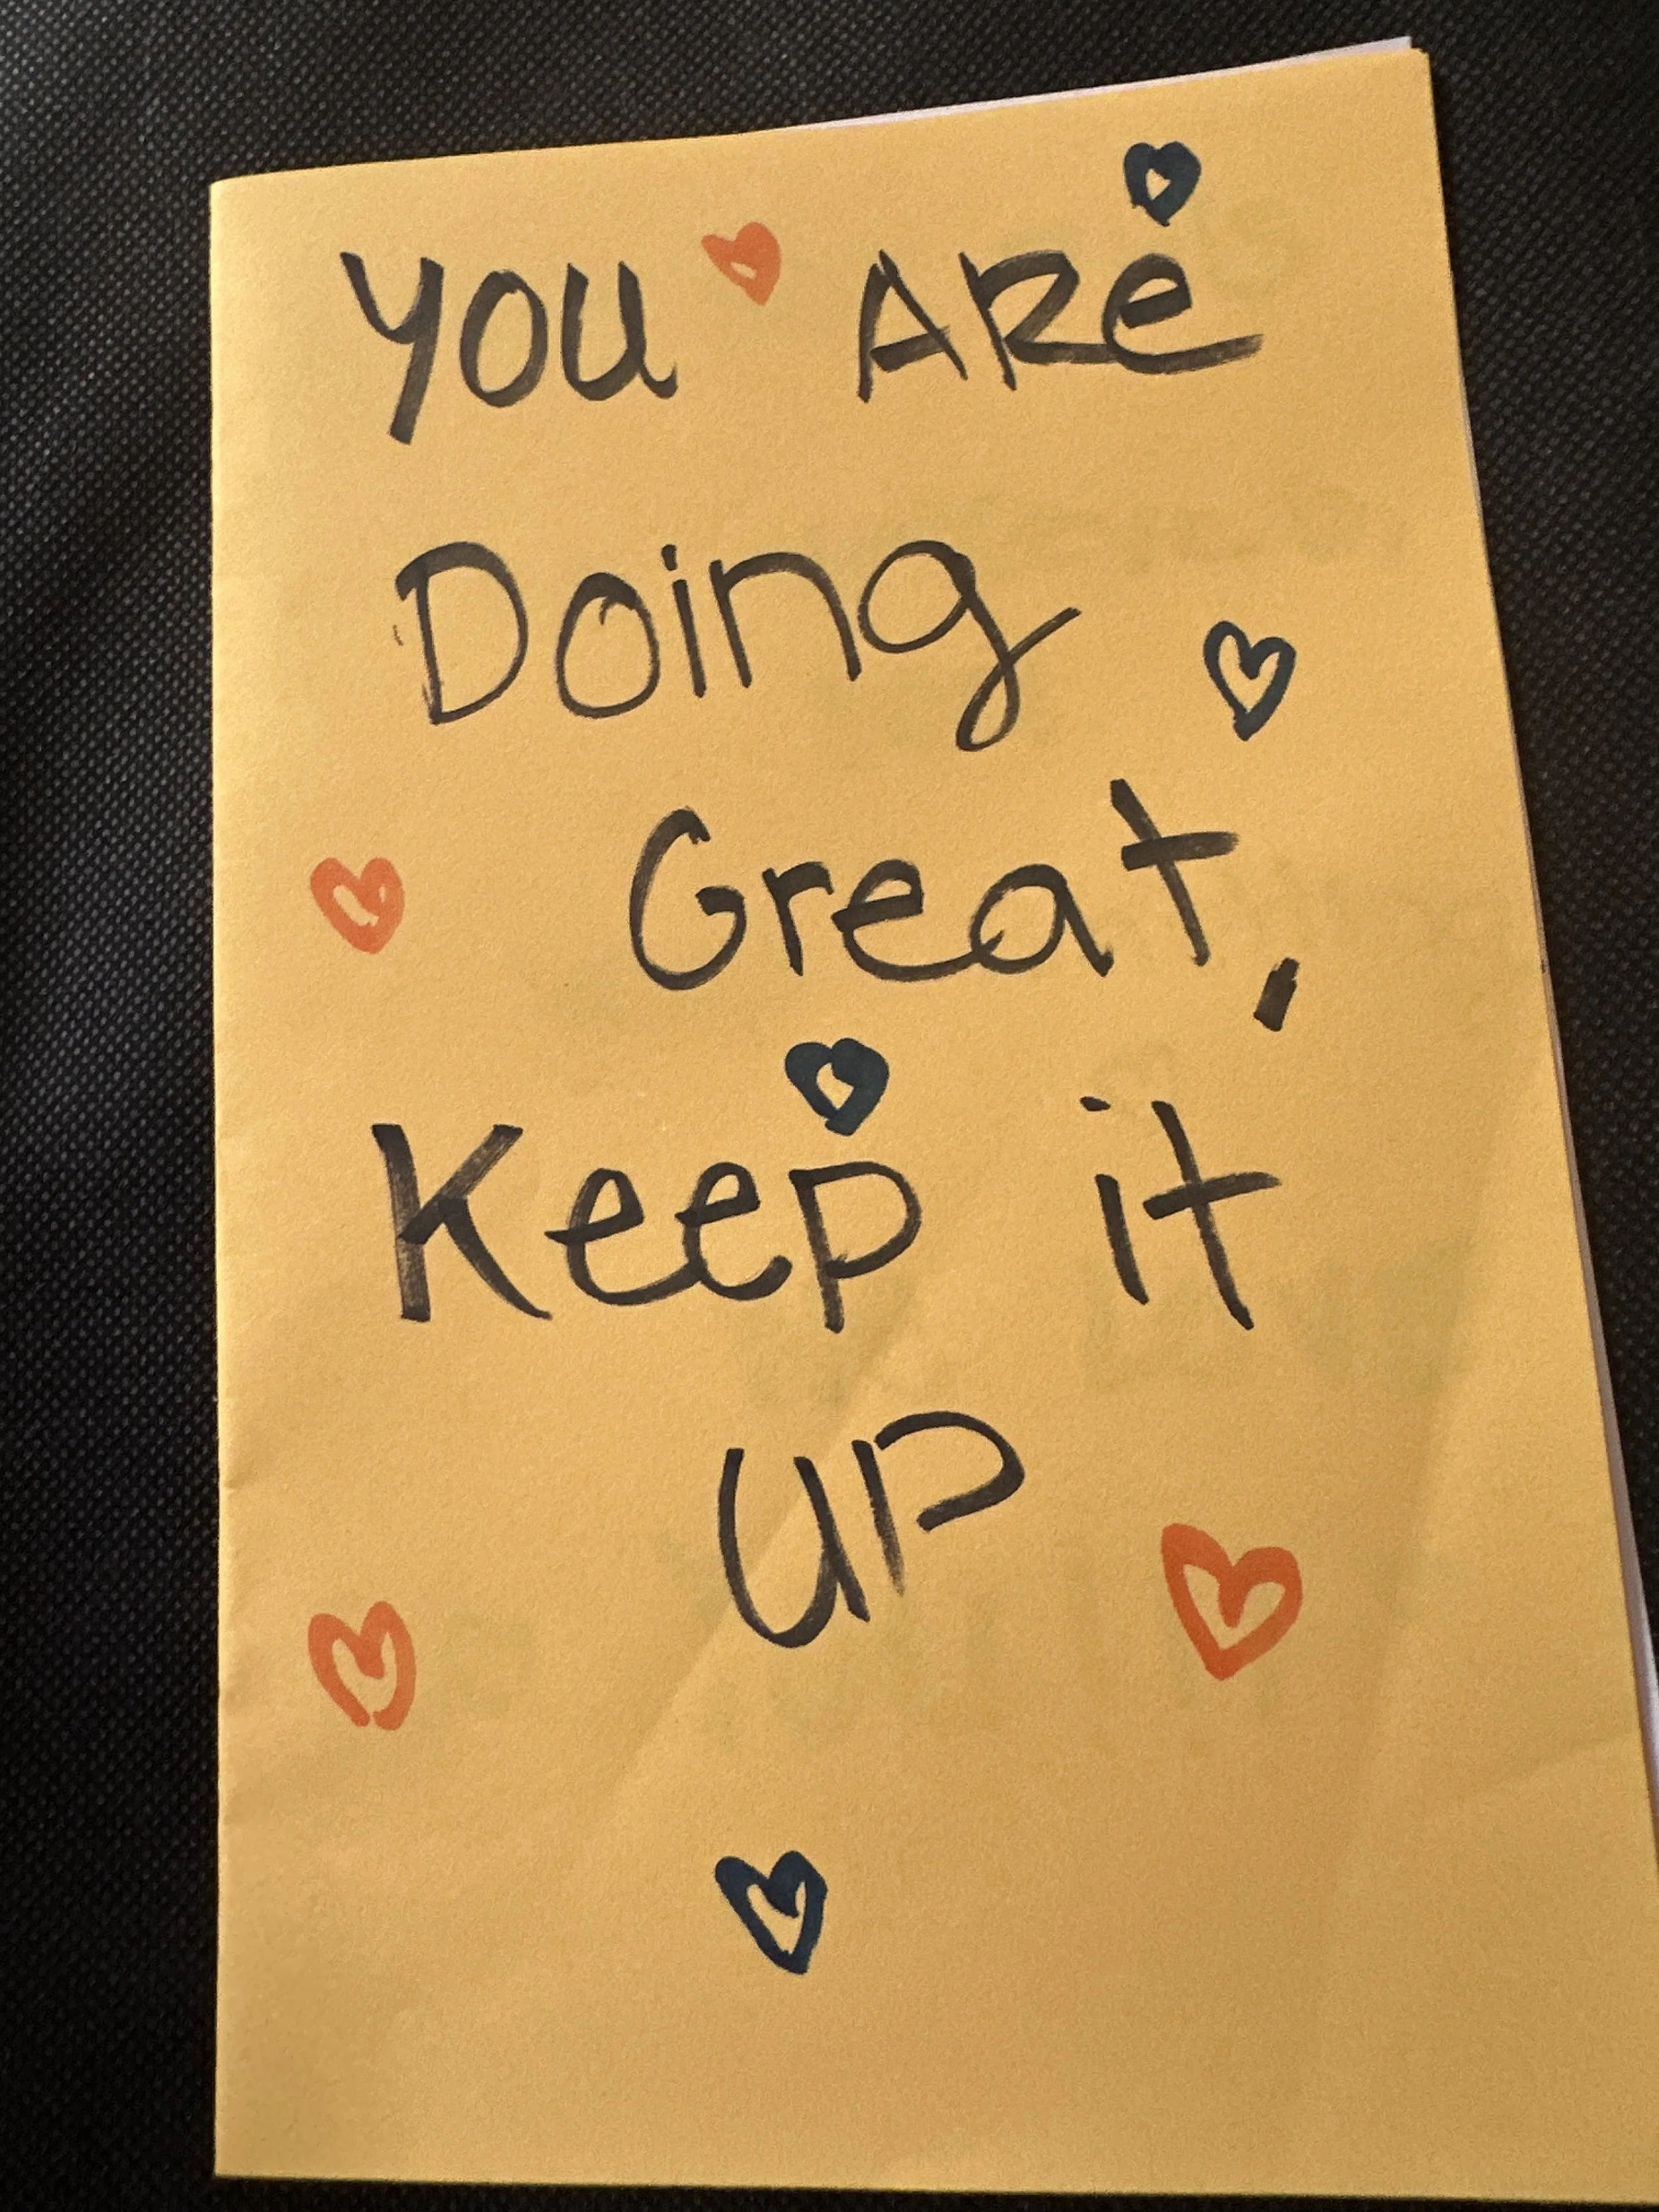 YOU ARe
Doing
Great,
Keep it
UP